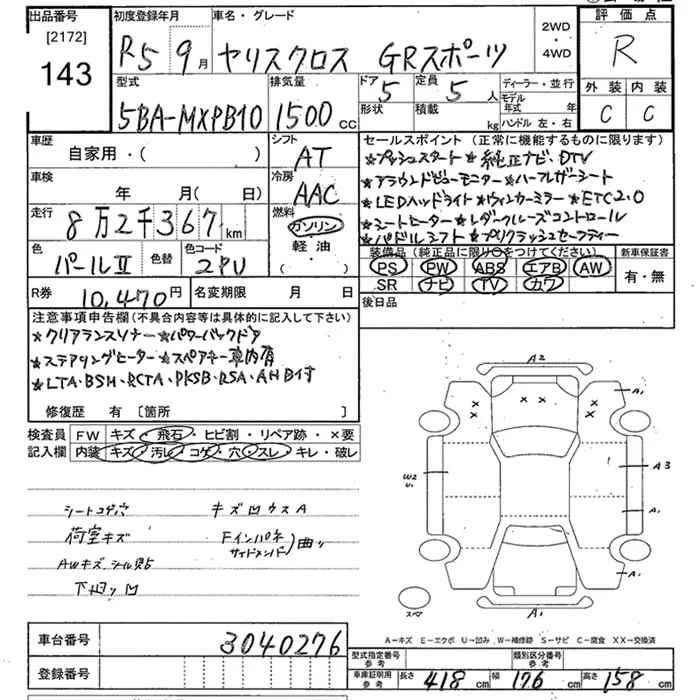 出品番号
[2172]
143
初度登録年月
R5 9月
車名・グレード
ヤリスクロス GRスポーツ
2WD
・
4WD
評価点
R
外装 内装
C C
型式
5BA-MXPB10
排気量
1500 cc
ドア
5
形状
定員
5 人
積載
kg
ディーラー・並行
モデル
年式 年
ハンドル 左・右
車歴
自家用・( )
シフト
AT
車検
年 月( 日)
冷房
AAC
走行
8万2千367km
燃料
ガソリン
軽油
・
( )
色
パールⅡ
色替
色コード
2PU
R券
10,470円
名変期限 月 日
セールスポイント (正常に機能するものに限ります)
★プッシュスタート★純正ナビ、DTV
★アラウンドビューモニター★ハーフレザーシート
★LEDヘッドライト★ウィンカーミラー★ETC2.0
★シートヒーター★レダクルーズコントロール
★パドルシフト★プリクラッシュセーフティー
装備品 (純正品に限り○をつけてください)
PS PW ABS エアB AW
SR ナビ TV カワ
新車保証書
有・無
後日品
注意事項申告欄(不具合内容等は具体的に記入して下さい)
★クリアランスソナー★パワーバックドア
★ステアリングヒーター★スペアキー車内有
★LTA・BSM・RCTA・PKSB・RSA・AHB付
修復歴 有 [箇所 ]
検査員
記入欄
FW キズ・飛石・ヒビ割・リペア跡・×要
内装 キズ・汚レ・コゲ・穴・スレ・キレ・破レ
シートコゲ穴
キズ凹ウスA
荷室キズ
Fインパネ
サイドメンバー)曲り
AWキズ、シール貼り
下廻り凹
A2
A1
×
×
× ×
×
×
W2
U1
A3
A1
A1
A1
スペア
A－キズ E－エクボ U－凹み W－補修跡 S－サビ C－腐食 XX－交換済
車台番号
3040276
登録番号
型式指定番号
参考
類別区分番号
参考
車庫証明用
参考
長さ 418 cm 幅 176 cm 高さ 158 cm